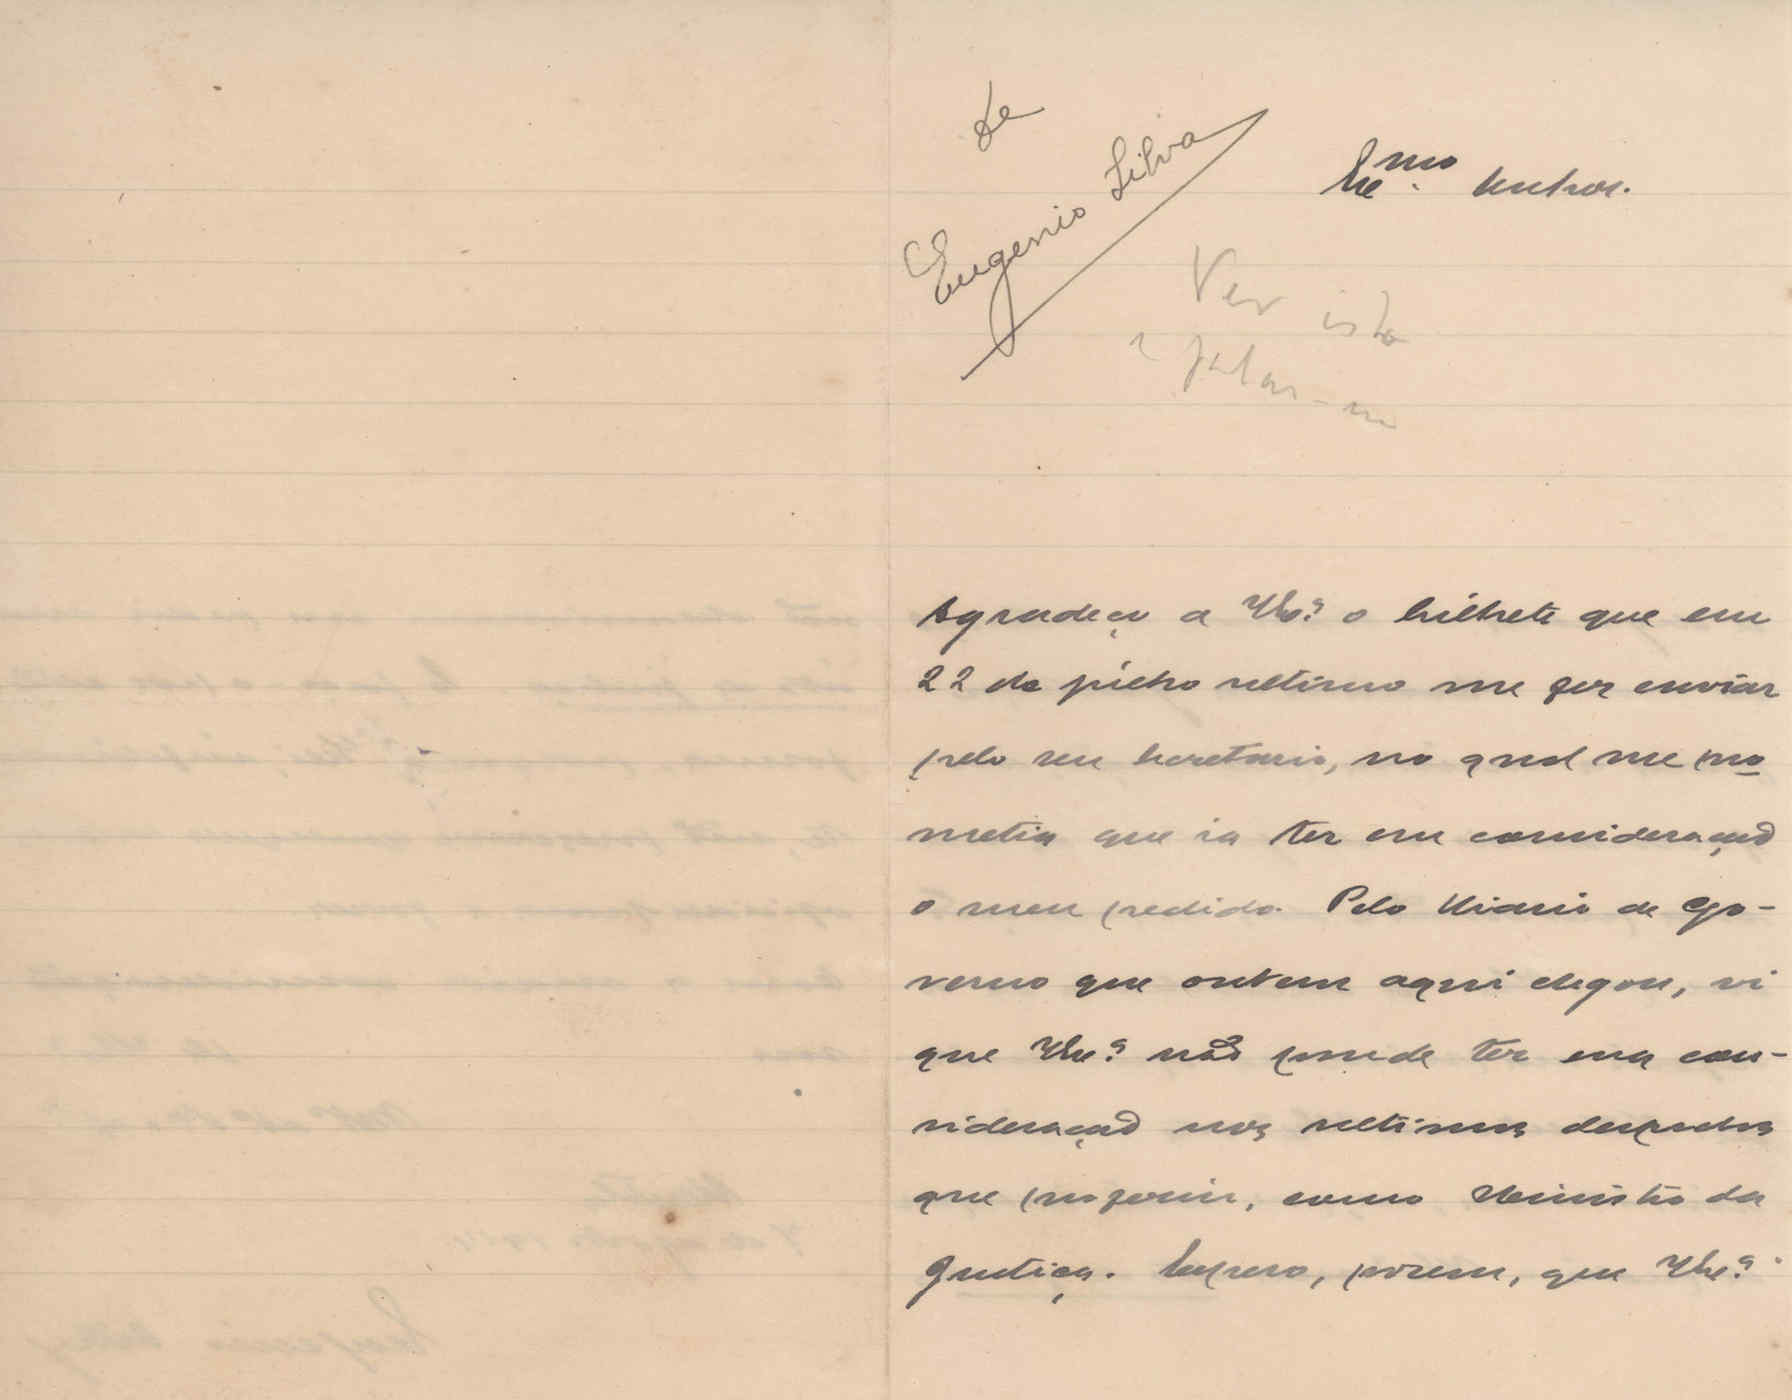 de
Eugenio Silva
Ex.mo Senhor.
Ver isto
e falar-me
Agradeço a V.Ex.ª o bilhete que em
22 de julho ultimo me fez enviar
pelo seu secretario, no qual me pro
metia que ia ter em consideração
o meu pedido. Pelo Diario de Go-
verno que ontem aqui chegou, vi
que V.Ex.ª não poude ter em con-
sideração nos ultimos despachos
que proferiu, como Ministro da
Justiça. Espero, porem, que V.Ex.ª